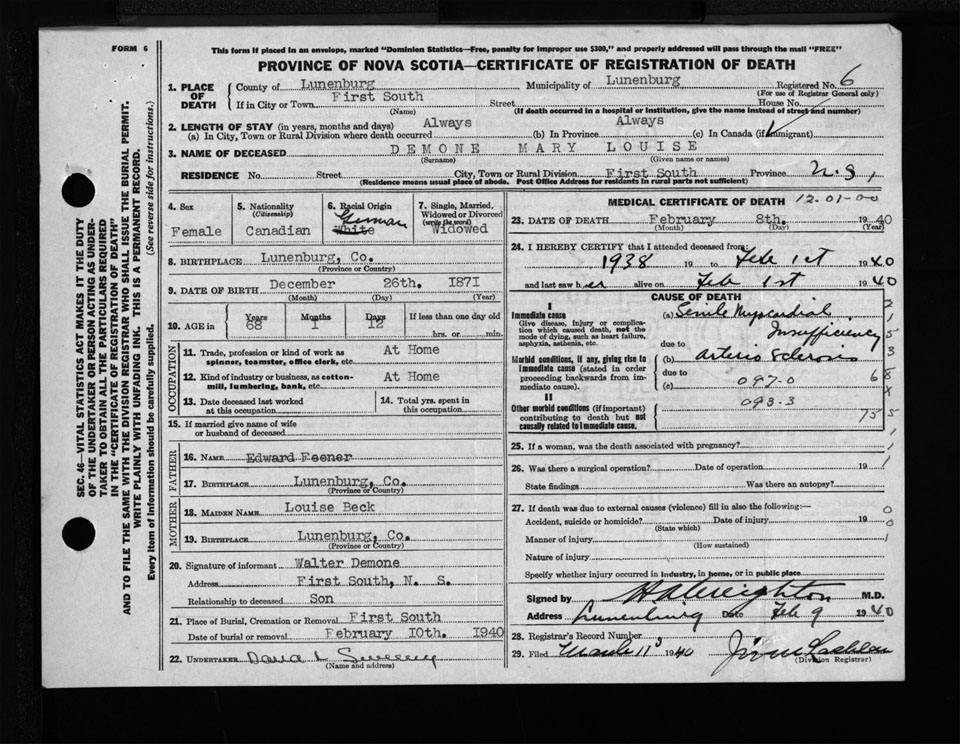 FORM 6
This form if placed in an envelope, marked "Dominion Statistics—Free, penalty for improper use $300," and properly addressed will pass through the mail "FREE"
PROVINCE OF NOVA SCOTIA—CERTIFICATE OF REGISTRATION OF DEATH
SEC. 46—VITAL STATISTICS ACT MAKES IT THE DUTY
OF THE UNDERTAKER OR PERSON ACTING AS UNDER-
TAKER TO OBTAIN ALL THE PARTICULARS REQUIRED
IN THE "CERTIFICATE OF REGISTRATION OF DEATH"
AND TO FILE THE SAME WITH THE DIVISION REGISTRAR WHO SHALL ISSUE THE BURIAL PERMIT.
WRITE PLAINLY WITH UNFADING INK. THIS IS A PERMANENT RECORD.
Every item of information should be carefully supplied. (See reverse side for instructions.)
1. PLACE OF DEATH
County of Lunenburg Municipality of Lunenburg Registered No. 6
(For use of Registrar General only)
If in City or Town First South Street House No.
(Name) (If death occurred in a hospital or institution, give the name instead of street and number)
2. LENGTH OF STAY (in years, months and days) Always Always
(a) In City, Town or Rural Division where death occurred (b) In Province (c) In Canada (if immigrant)
3. NAME OF DECEASED DEMONE MARY LOUISE
(Surname) (Given name or names)
RESIDENCE No. Street City, Town or Rural Division First South Province N.S.
(Residence means usual place of abode. Post Office Address for residents in rural parts not sufficient)
4. Sex
Female
5. Nationality
(Citizenship)
Canadian
6. Racial Origin
German
White
7. Single, Married,
Widowed or Divorced
(write the word)
Widowed
8. BIRTHPLACE Lunenburg, Co.
(Province or Country)
9. DATE OF BIRTH December 26th. 1871
(Month) (Day) (Year)
10. AGE in Years Months Days If less than one day old
68 1 12 hrs. or min.
OCCUPATION
11. Trade, profession or kind of work as
spinner, teamster, office clerk, etc. At Home
12. Kind of industry or business, as cotton-
mill, lumbering, bank, etc. At Home
13. Date deceased last worked
at this occupation
14. Total yrs. spent in
this occupation
15. If married give name of wife
or husband of deceased
FATHER
16. NAME Edward Feener
17. BIRTHPLACE Lunenburg, Co.
(Province or Country)
MOTHER
18. MAIDEN NAME Louise Beck
19. BIRTHPLACE Lunenburg, Co.
(Province or Country)
20. Signature of informant Walter Demone
Address First South, N. S.
Relationship to deceased Son
21. Place of Burial, Cremation or Removal First South
Date of burial or removal February 10th. 1940
22. UNDERTAKER David L Sweeny
(Name and address)
MEDICAL CERTIFICATE OF DEATH
12-01-00
23. DATE OF DEATH February 8th. 1940
(Month) (Day)
24. I HEREBY CERTIFY that I attended deceased from:
1938 19 to Feb 1st 1940
and last saw her alive on Feb 1st 1940
CAUSE OF DEATH
I
Immediate cause
Give disease, injury or complica-
tion which caused death, not the
mode of dying, such as heart failure,
asphyxia, asthenia, etc.
(a) Senile Myocardial
Insufficiency
due to
Morbid conditions, if any, giving rise to
immediate cause (stated in order
proceeding backwards from im-
mediate cause).
(b) Arterio Sclerosis
due to
(c) 097-0
093-3
II
Other morbid conditions (if important)
contributing to death but not
causally related to immediate cause.
25. If a woman, was the death associated with pregnancy?
26. Was there a surgical operation? Date of operation 19
State findings Was there an autopsy?
27. If death was due to external causes (violence) fill in also the following:—
Accident, suicide or homicide? Date of injury 19
(State which)
Manner of injury
(How sustained)
Nature of injury
Specify whether injury occurred in industry, in home, or in public place
Signed by H A Creighton M.D.
Address Lunenburg Date Feb 9 1940
28. Registrar's Record Number
29. Filed March 11 1940
(Division Registrar)